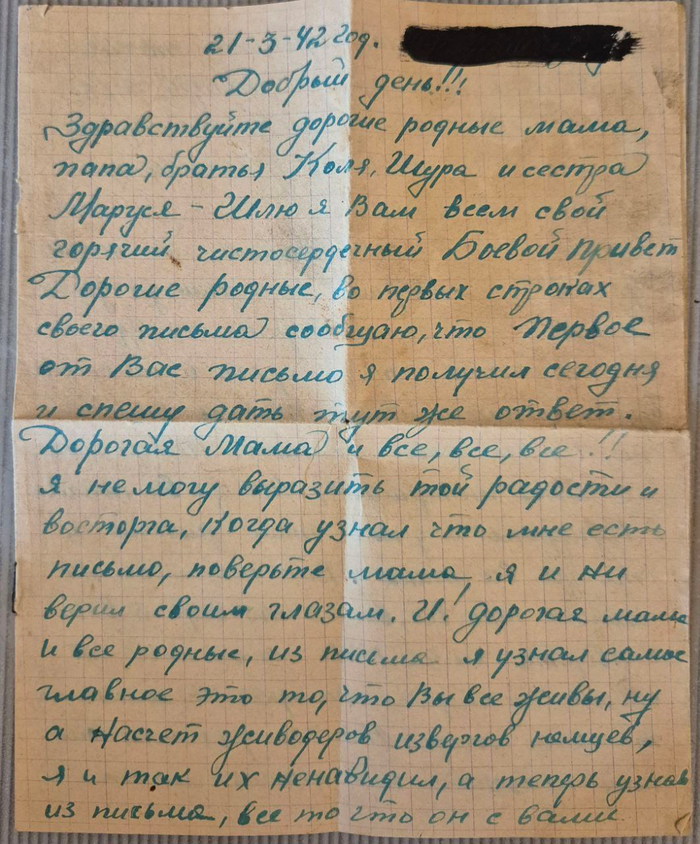 21-3-42 год.
Добрый день!!!
Здравствуйте дорогие родные мама,
папа, братья Коля, Шура и сестра
Маруся - Шлю я Вам всем свой
горячий, чистосердечный Боевой привет
Дорогие родные, во первых строках
своего письма сообщаю, что Первое
от Вас письмо я получил сегодня
и спешу дать тут же ответ.
Дорогая Мама и все, все, все!!
я не могу выразить той радости и
восторга, когда узнал что мне есть
письмо, поверьте мама, я и ни
верил своим глазам. И! дорогая мама
и все родные, из письма я узнал самое
главное это то, что Вы все живы, ну
а насчет живодеров извергов немцев,
я и так их ненавидил, а теперь узнав
из письма, все то что он с вами